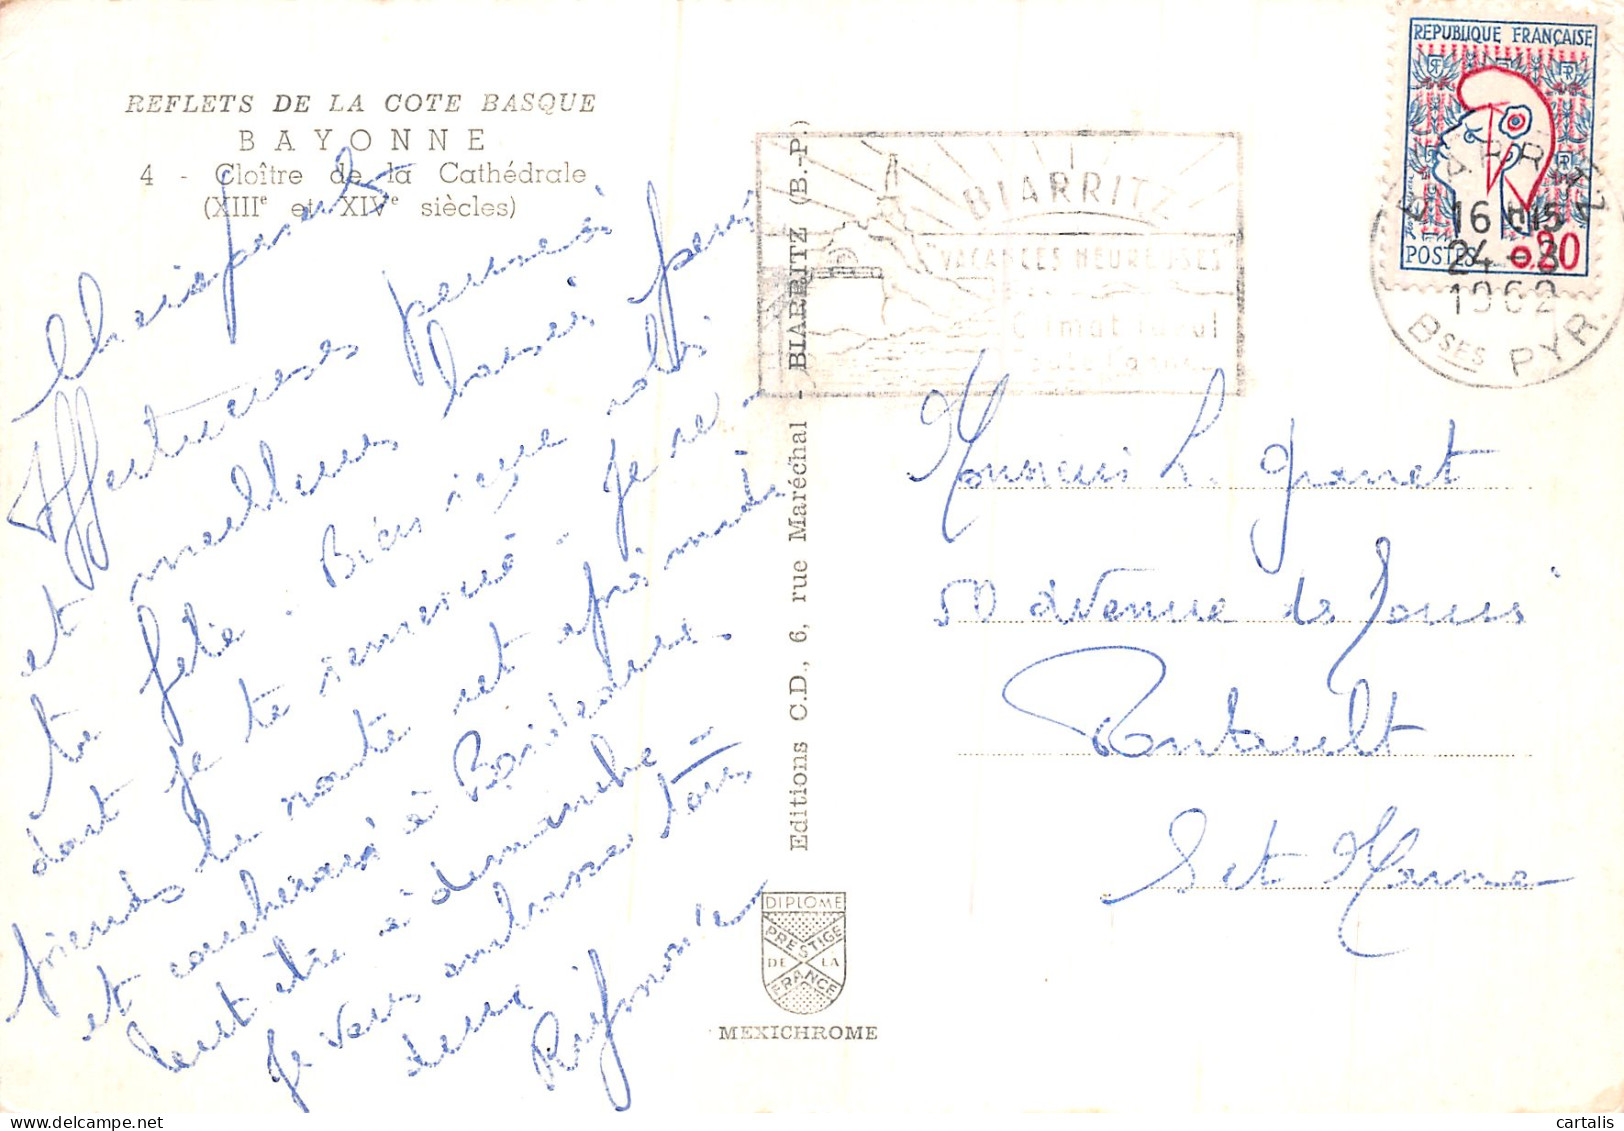 REFLETS DE LA COTE BASQUE
BAYONNE
4 - Cloître de la Cathédrale
(XIIIe et XIVe siècles)
Affectueuses pensées
et meilleurs baisers pour
ta fête. Bien reçu colis
dont je te remercie. Je re-
prends la route cet après midi
et coucherai à Bordeaux.
Peut être à dimanche.
Je vous embrasse tous
deux
Raymonde
Editions C.D., 6, rue Maréchal - BIARRITZ (B.-P.)
DIPLOME
PRESTIGE
DE LA
FRANCE
MEXICHROME
BIARRITZ
"VACANCES HEUREUSES"
Climat idéal
REPUBLIQUE FRANÇAISE
POSTES 0,20
BIARRITZ
16 H15
24-3
1962
Bses PYR.
Monsieur L. Granet
50 Avenue de
Pontault
Set Marne
cartalis